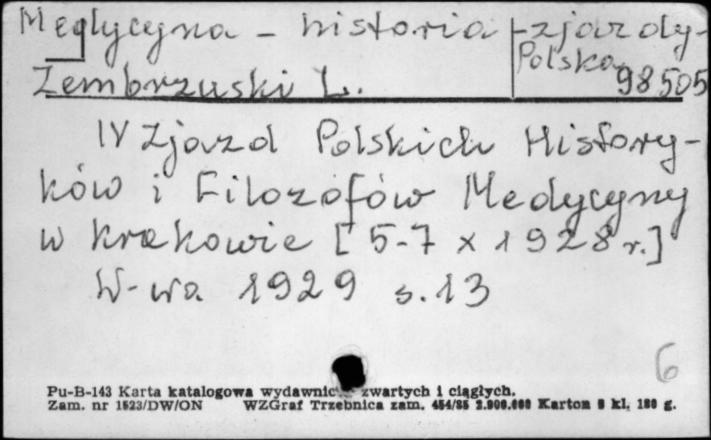 Medycyna - historia - zjazdy -
Polska
98505
Zembrzuski L.
IV Zjazd Polskich History-
ków i Filozofów Medycyny
w Krakowie [5-7 x 1928 r.]
W-wa 1929 s. 13
6
Pu-B-143 Karta katalogowa wydawnic zwartych i ciągłych.
Zam. nr 1523/DW/ON WZGraf Trzebnica zam. 454/85 2.000.000 Karton 8 kl. 180 g.